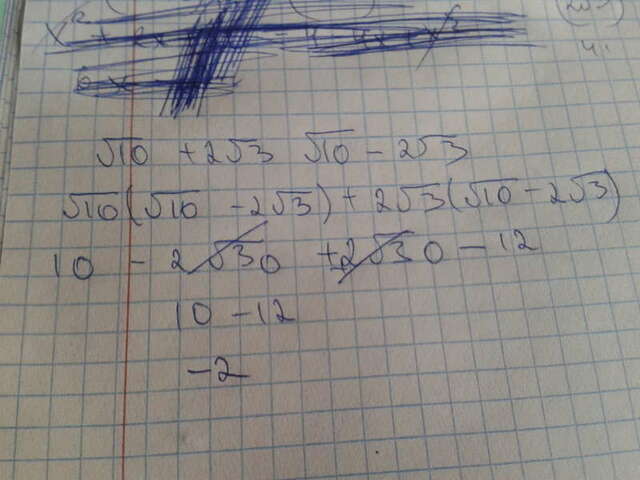 √10 + 2√3 √10 - 2√3
√10(√10 - 2√3) + 2√3(√10 - 2√3)
10 - 2√30 + 2√30 - 12
10 - 12
-2